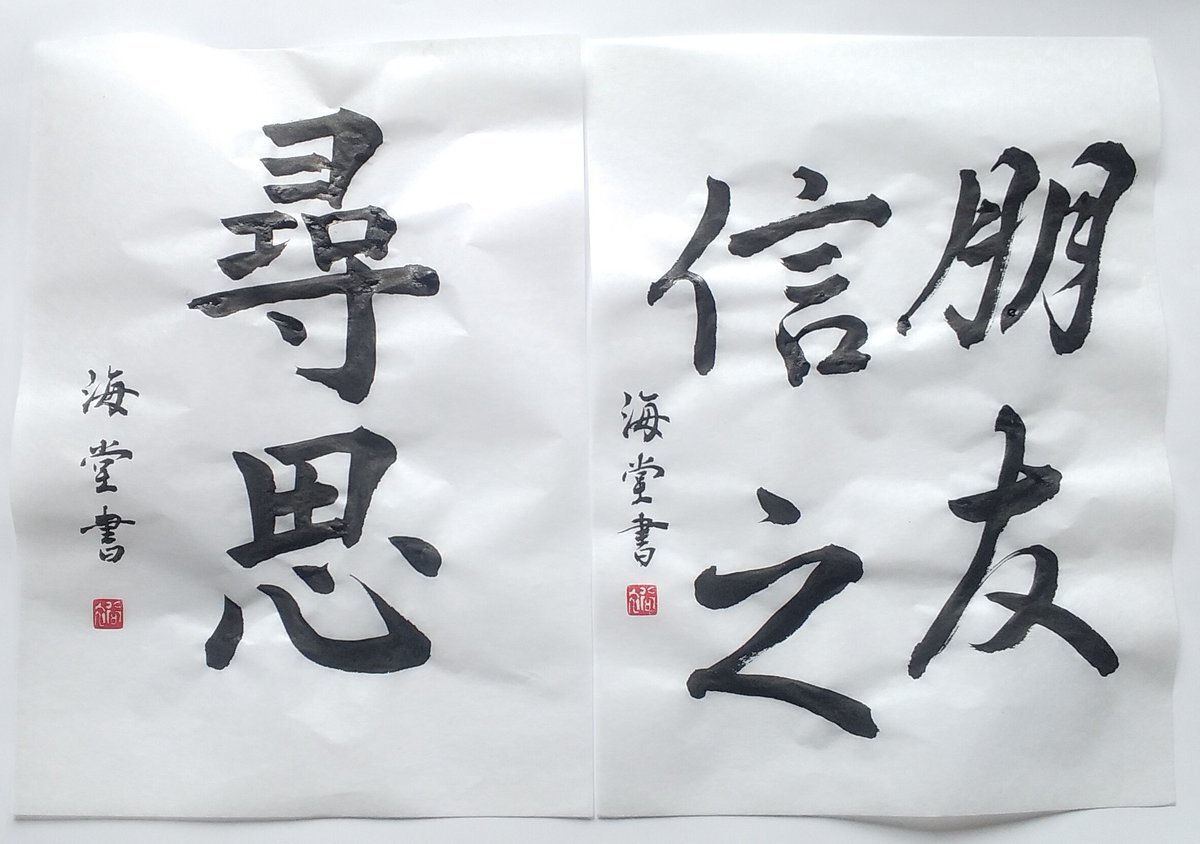 朋友
信之
海堂書
尋思
海堂書